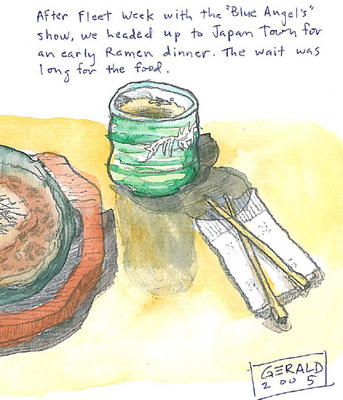 After Fleet Week with the "Blue Angel's"
show, we headed up to Japan Town for
an early Ramen dinner. The wait was
long for the food.
GERALD
2005